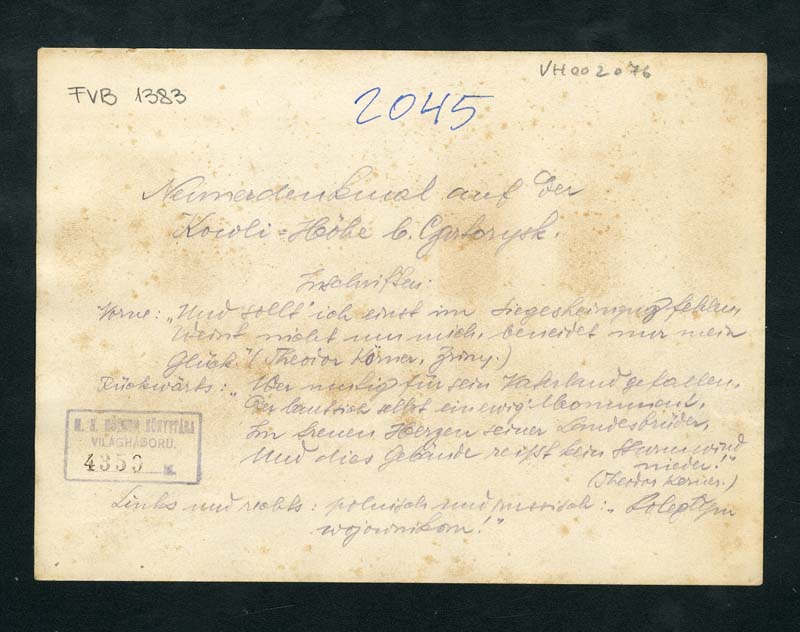 FVB 1383
VH 002076
2045
denkmal auf der
Kowli=Höhe b. Czartorysk.
Inschriften:
Vorne: „Und sollt' ich einst im Siegesheimzug fehlen,
Weint nicht um mich, beneidet mir mein
Glück." (Theodor Körner, Zriny.)
Rückwärts: „Wer mutig für sein Vaterland gefallen,
Der baut sich selbst ein ewig Monument,
Im treuen Herzen seiner Landesbrüder,
Und dies Gebäude reißt kein Sturmwind
nieder!"
(Theodor Körner.)
Links und rechts: polnisch und russisch: „
wojownikom!"
M. N. MÚZEUM KÖNYVTÁRA
VILÁGHÁBORÚ.
4350